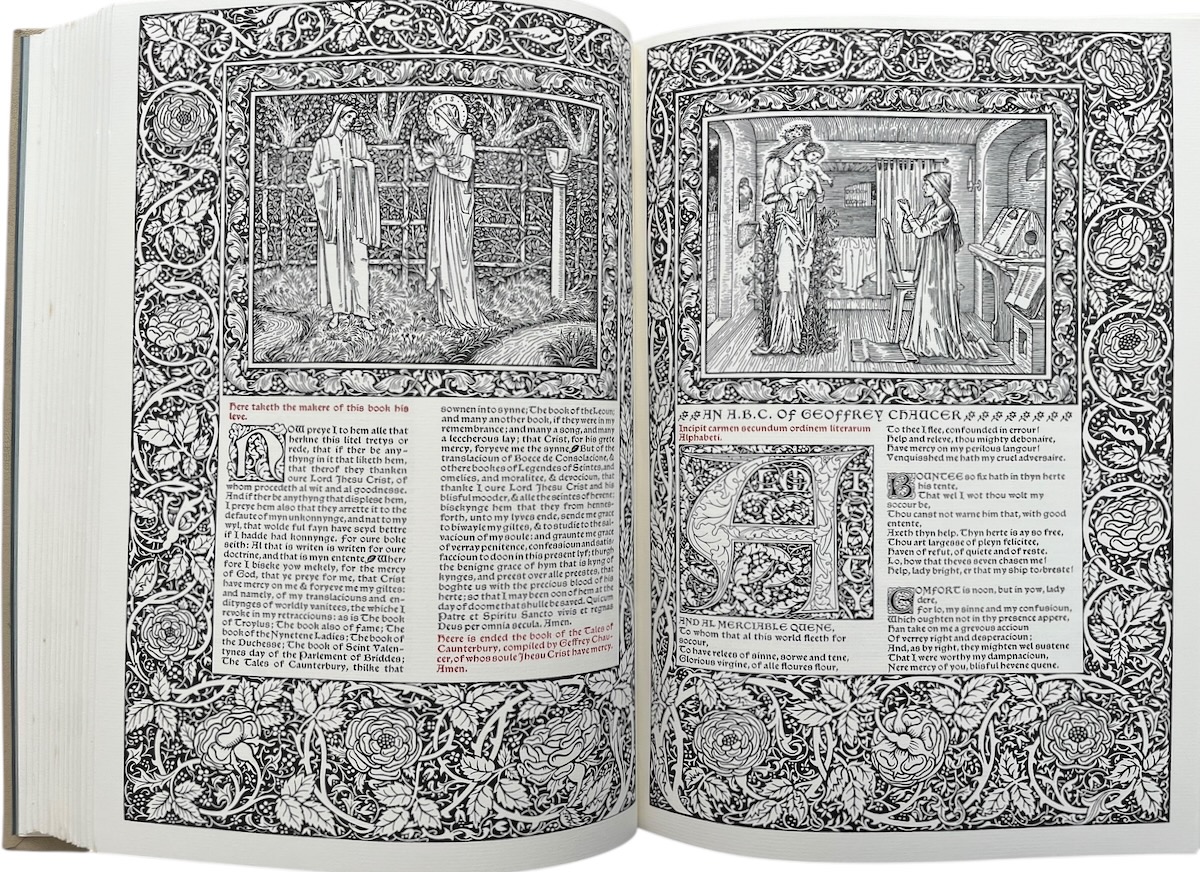 Here taketh the makere of this book his
leve.
NOW preye I to hem alle that
herkne this litel tretys or
rede, that if ther be any-
thyng in it that liketh hem,
that therof they thanken
oure Lord Jhesu Crist, of
whom procedeth al wit and al goodnesse.
And if ther be anything that displese hem,
I preye hem also that they arrette it to the
defaute of myn unkonnynge, and nat to my
wyl, that wolde ful fayn have seyd bettre
if I hadde had konnynge. For oure boke
seith: Al that is writen is writen for oure
doctrine, and that is myn entente. Wher-
fore I biseke yow mekely, for the mercy
of God, that ye preye for me, that Crist
have mercy on me & foryeve me my giltes:
and namely, of my translaciouns and en-
ditynges of worldly vanitees, the whiche I
revoke in my retracciouns: as is The book
of Troylus; The book also of Fame; The
book of the Nynetene Ladies; The book of
the Duchesse; The book of Seint Valen-
tynes day of the Parlement of Briddes;
The Tales of Caunterbury, thilke that
sownen into synne; The book of the Leoun;
and many another book, if they were in my
remembrance; and many a song, and many
a leccherous lay; that Crist, for his grete
mercy, foryeve me the synne. But of the
translacioun of Boece de Consolacione,
& othere bookes of Legendes of Seintes, and
omelies, and moralitee, & devocioun, that
thanke I oure Lord Jhesu Crist and his
blisful mooder, & alle the seintes of hevene;
bisekynge hem that they from hennes-
forth, unto my lyves ende, sende me grace
to biwayle my giltes, & to studie to the sal-
vacioun of my soule: and graunte me grace
of verray penitence, confessioun and satis-
faccioun to doon in this present lyf; thurgh
the benigne grace of hym that is kyng of
kynges, and preest over alle preestes, that
boghte us with the precious blood of his
herte; so that I may been oon of hem at the
day of doome that shulle be saved. Qui cum
Patre et Spiritu Sancto vivis et regnas
Deus per omnia secula. Amen.
Heere is ended the book of the Tales of
Caunterbury, compiled by Geffrey Chau-
cer, of whos soule Jhesu Crist have mercy.
Amen.
AN A.B.C. OF GEOFFREY CHAUCER
Incipit carmen secundum ordinem literarum
Alphabeti.
AL
MYGHTY
AND AL MERCIABLE QUENE,
To whom that al this world fleeth for
socour,
To have relees of sinne, sorwe and tene,
Glorious virgine, of alle floures flour,
To thee I flee, confounded in errour!
Help and releve, thou mighty debonaire,
Have mercy on my perilous langour!
Venquisshed me hath my cruel adversaire.
BOUNTEE so fix hath in thyn herte
his tente,
That wel I wot thou wolt my
socour be,
Thou canst not warne him that, with good
entente,
Axeth thyn help. Thyn herte is ay so free,
Thou art largesse of pleyn felicitee,
Haven of refut, of quiete and of reste.
Lo, how that theves seven chasen me!
Help, lady bright, er that my ship to-breste!
COMFORT is noon, but in yow, lady
dere,
For lo, my sinne and my confusioun,
Which oughten not in thy presence appere,
Han take on me a grevous accioun
Of verrey right and desperacioun;
And, as by right, they mighten wel sustene
That I were worthy my dampnacioun,
Nere mercy of you, blisful hevene quene.